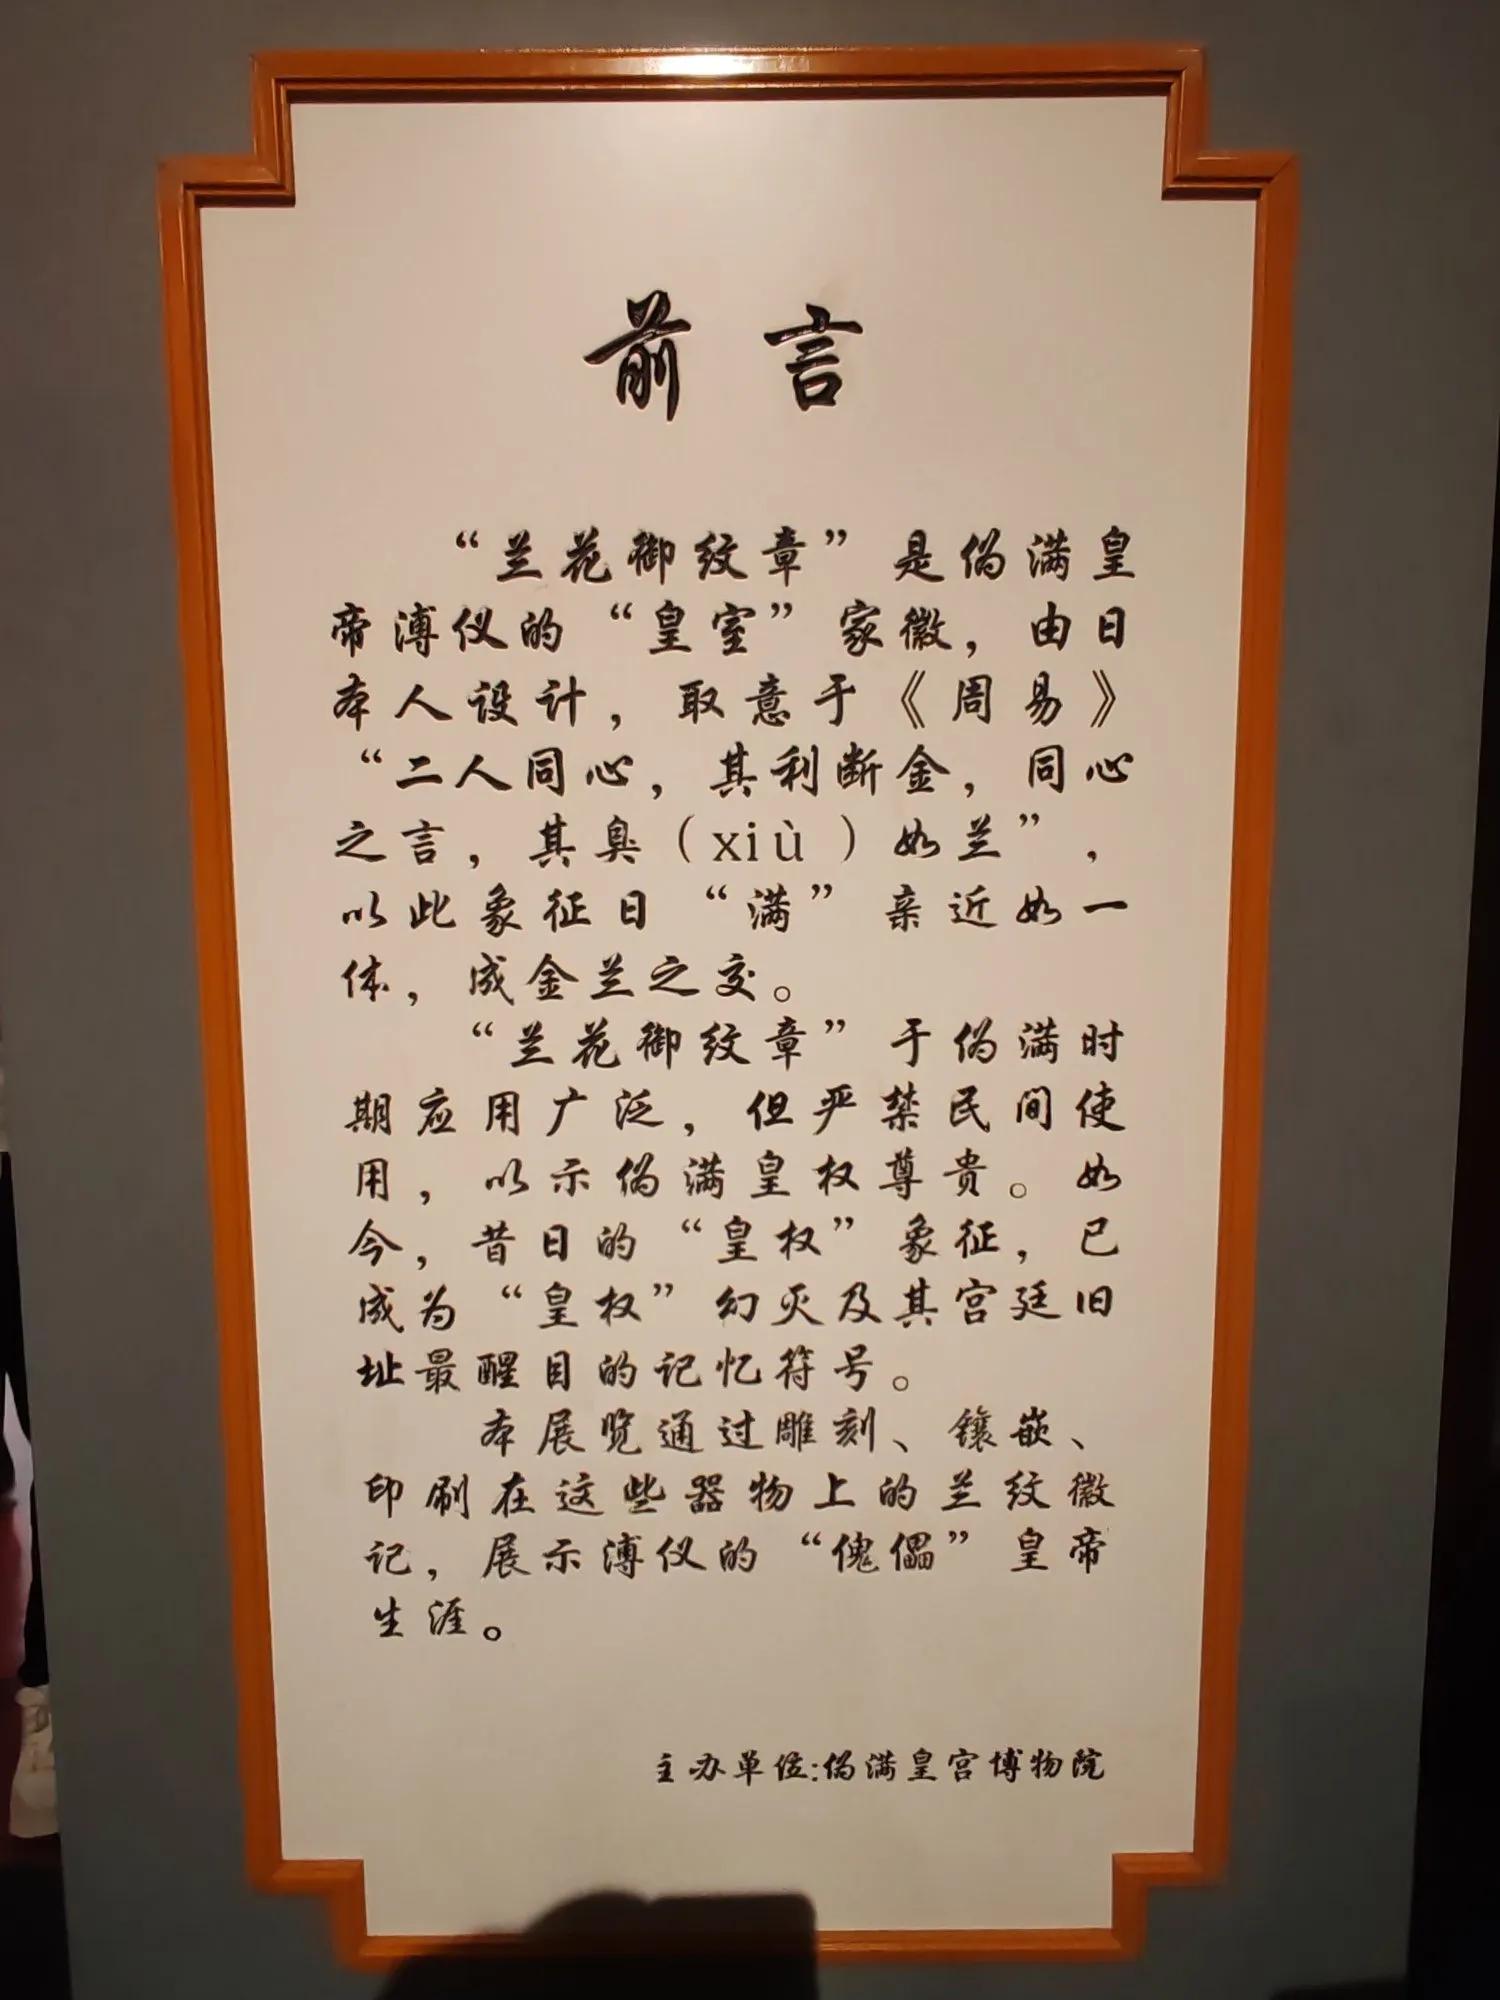 前言
“兰花御纹章”是伪满皇
帝溥仪的“皇室”家徽，由日
本人设计，取意于《周易》
“二人同心，其利断金，同心
之言，其臭（xiù）如兰”，
以此象征日“满”亲近如一
体，成金兰之交。
“兰花御纹章”于伪满时
期应用广泛，但严禁民间使
用，以示伪满皇权尊贵。如
今，昔日的“皇权”象征，已
成为“皇权”幻灭及其宫廷旧
址最醒目的记忆符号。
本展览通过雕刻、镶嵌、
印刷在这些器物上的兰纹徽
记，展示溥仪的“傀儡”皇帝
生涯。
主办单位:伪满皇宫博物院